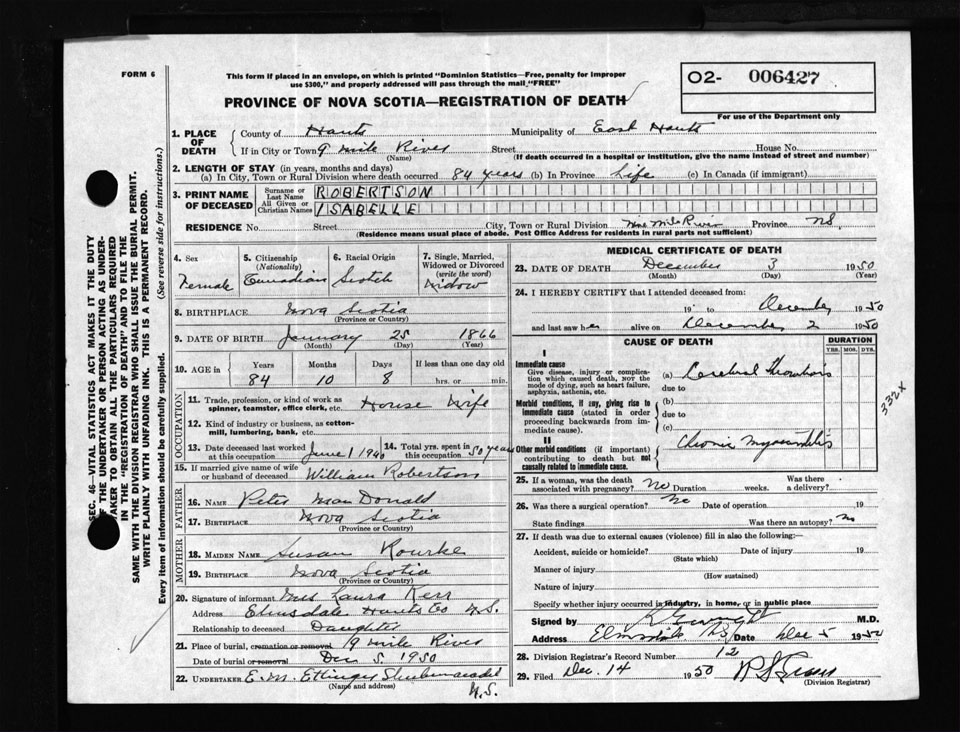 FORM 6
This form if placed in an envelope, on which is printed "Dominion Statistics—Free, penalty for improper
use $300," and properly addressed will pass through the mail "FREE"
O2- 006427
PROVINCE OF NOVA SCOTIA—REGISTRATION OF DEATH
For use of the Department only
SEC. 46—VITAL STATISTICS ACT MAKES IT THE DUTY
OF THE UNDERTAKER OR PERSON ACTING AS UNDER-
TAKER TO OBTAIN ALL THE PARTICULARS REQUIRED
IN THE "REGISTRATION OF DEATH" AND TO FILE THE
SAME WITH THE DIVISION REGISTRAR WHO SHALL ISSUE THE BURIAL PERMIT.
WRITE PLAINLY WITH UNFADING INK. THIS IS A PERMANENT RECORD.
Every item of information should be carefully supplied. (See reverse side for instructions.)
1. PLACE OF DEATH
County of Hants Municipality of East Hants
If in City or Town 9 mile River Street House No.
(Name) (If death occurred in a hospital or institution, give the name instead of street and number)
2. LENGTH OF STAY (in years, months and days)
(a) In City, Town or Rural Division where death occurred 84 years (b) In Province Life (c) In Canada (if immigrant)
3. PRINT NAME OF DECEASED
Surname or Last Name ROBERTSON
All Given or Christian Names ISABELLE
RESIDENCE No. Street City, Town or Rural Division Nine Mile River Province NS
(Residence means usual place of abode. Post Office Address for residents in rural parts not sufficient)
4. Sex
Female
5. Citizenship
(Nationality)
Canadian
6. Racial Origin
Scotch
7. Single, Married, Widowed or Divorced
(write the word)
Widow
8. BIRTHPLACE Nova Scotia
(Province or Country)
9. DATE OF BIRTH January 25 1866
(Month) (Day) (Year)
10. AGE in Years Months Days If less than one day old
84 10 8 hrs. or min.
OCCUPATION
11. Trade, profession, or kind of work as
spinner, teamster, office clerk, etc. House Wife
12. Kind of industry or business, as cotton-
mill, lumbering, bank, etc.
13. Date deceased last worked
at this occupation June 1 1940
14. Total yrs. spent in
this occupation 50 years
15. If married give name of wife
or husband of deceased William Robertson
FATHER
16. Name Peter MacDonald
17. Birthplace Nova Scotia
(Province or Country)
MOTHER
18. MAIDEN NAME Susan Rourke
19. BIRTHPLACE Nova Scotia
(Province or Country)
20. Signature of informant Mrs Laura Kerr
Address Elmsdale Hants Co N.S.
Relationship to deceased Daughter
21. Place of burial, cremation or removal 9 mile River
Date of burial or removal Dec 5. 1950
22. UNDERTAKER E. M. Ettinger Shubenacadie
(Name and address)
N.S.
MEDICAL CERTIFICATE OF DEATH
23. DATE OF DEATH December 3 1950
(Month) (Day) (Year)
24. I HEREBY CERTIFY that I attended deceased from:
19 to December 1950
and last saw her alive on December 2 1950
CAUSE OF DEATH
DURATION
YRS. MOS. DYS.
I
Immediate cause
Give disease, injury or complica-
tion which caused death, NOT the
mode of dying, such as heart failure,
asphyxia, asthenia, etc.
(a) Cerebral Thrombosis
due to
Morbid conditions, if any, giving rise to
immediate cause (stated in order
proceeding backwards from im-
mediate cause).
(b)
due to
(c)
II
Other morbid conditions (if important)
contributing to death but not
causally related to immediate cause.
Chronic myocarditis
332X
25. If a woman, was the death
associated with pregnancy? No Duration weeks. Was there a delivery?
26. Was there a surgical operation? No Date of operation 19
State findings Was there an autopsy? No
27. If death was due to external causes (violence) fill in also the following:—
Accident, suicide or homicide? Date of injury 19
(State which)
Manner of injury
(How sustained)
Nature of injury
Specify whether injury occurred in industry, in home, or in public place
Signed by M.D.
Address Elmsdale NS Date Dec 5 1950
28. Division Registrar's Record Number 12
29. Filed Dec. 14 1950
(Division Registrar)